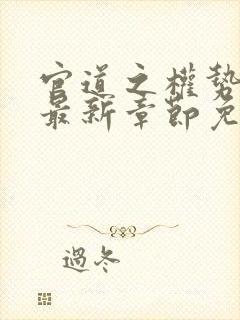 官道之權勢
最新章節免
過冬